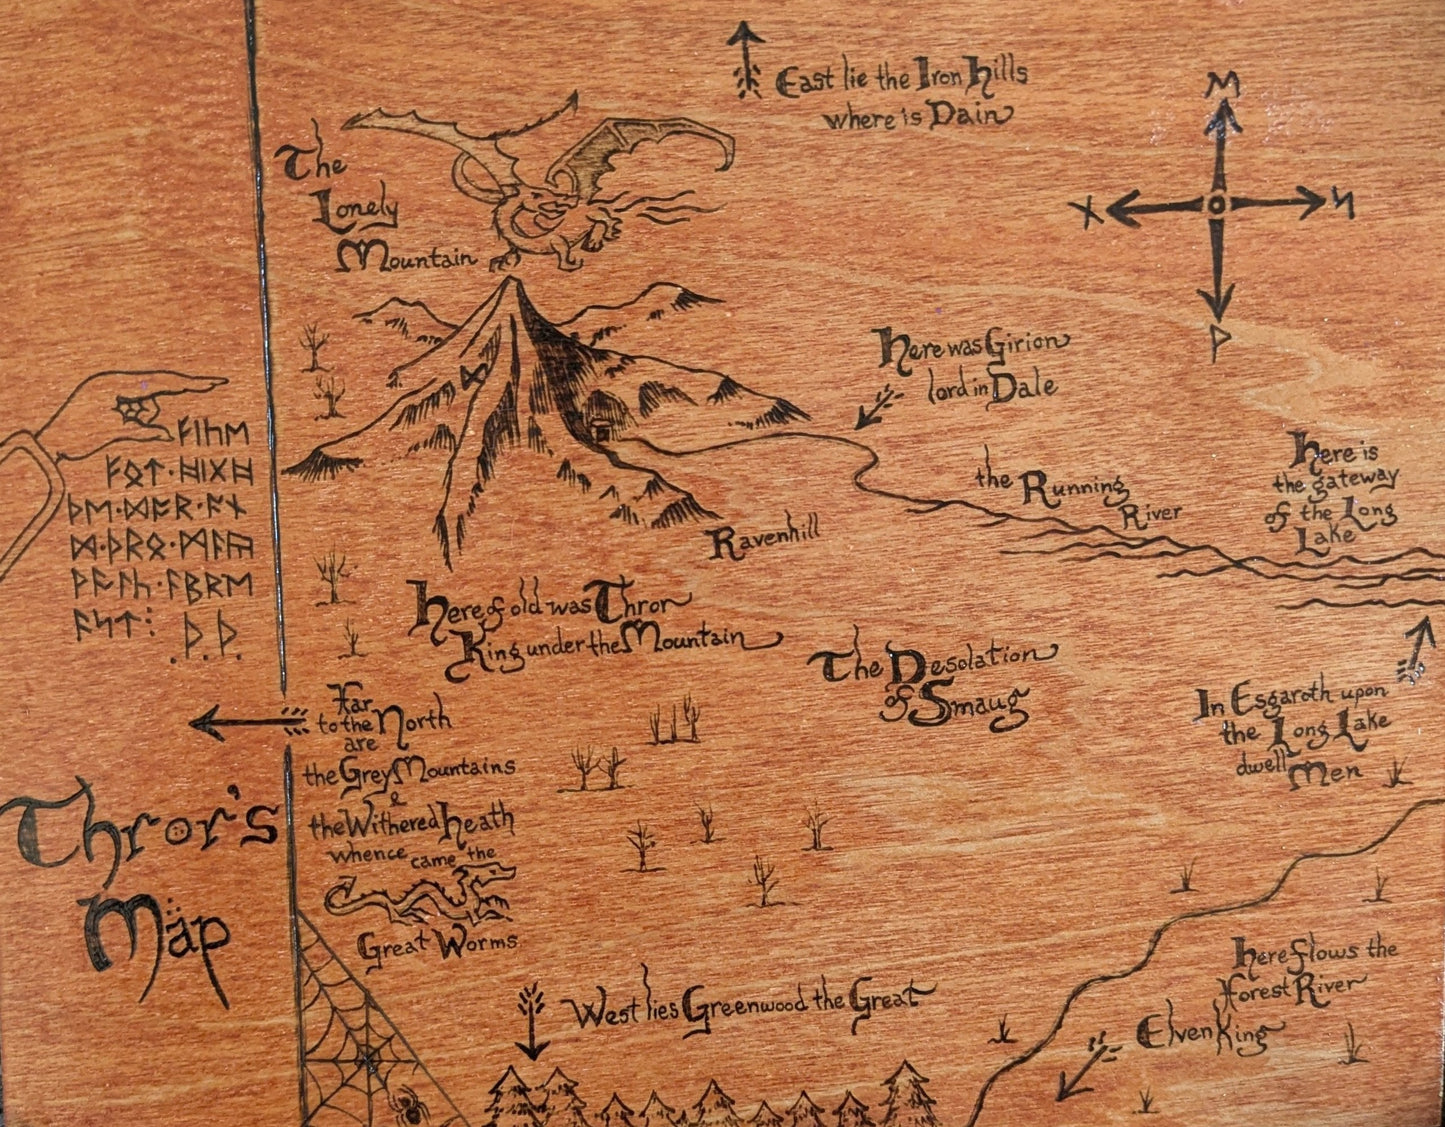 East lie the Iron Hills
where is Dain
ᛖ
ᚾ
ᛋ
ᚹ
The
Lonely
Mountain
ᛞ
Here was Girion
lord in Dale
the Running
River
Here is
the gateway
of the Long
Lake
ᚠᛁᚢᛖ
ᚠᛟᛏ·ᚻᛁᚷᚻ
ᚦᛖ·ᛞᚩᚱ·ᚫᚾ
ᛞ·ᚦᚱᛟ·ᛗᚫᚣ
ᚹᚫᛚᚳ·ᚫᛒᚱᛖ
ᚫᛋᛏ⁝
.ᚦ.ᚦ.
Ravenhill
Here of old was Thror
King under the Mountain
The Desolation
of Smaug
In Esgaroth upon
the Long Lake
dwell Men
Far
to the North
are
the Grey Mountains
&
the Withered Heath
whence came the
Great Worms
Thror's
Map
West lies Greenwood the Great
Here flows the
Forest River
ElvenKing